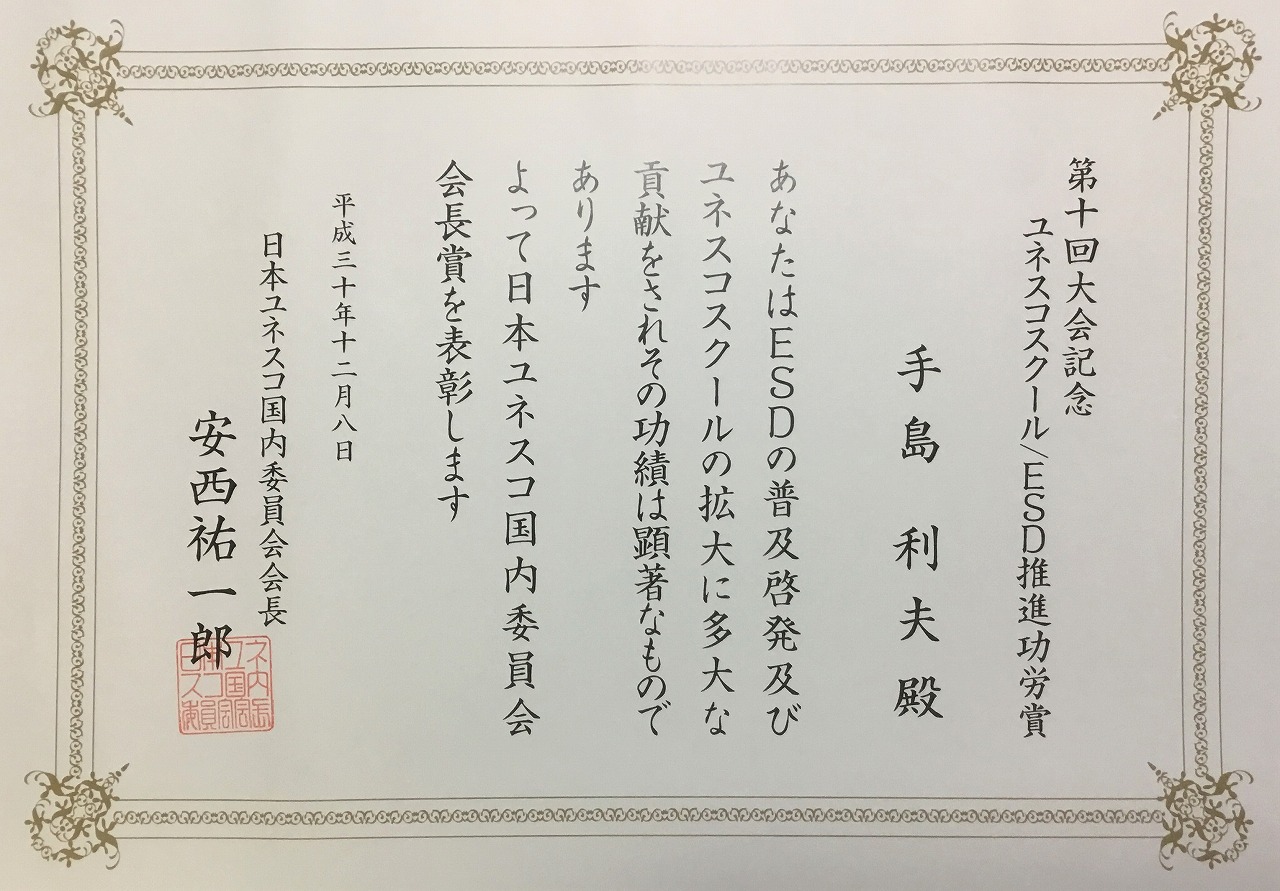 第十回大会記念
ユネスコスクール/ESD推進功労賞
手島利夫殿
あなたはESDの普及啓発及び
ユネスコスクールの拡大に多大な
貢献をされその功績は顕著なもので
あります
よって日本ユネスコ国内委員会
会長賞を表彰します
平成三十年十二月八日
日本ユネスコ国内委員会会長
安西祐一郎